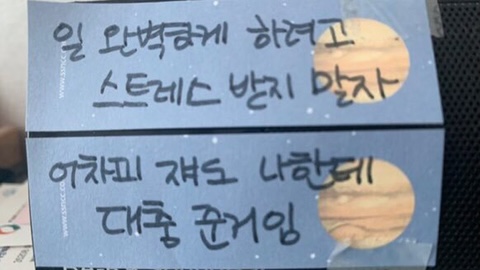 일 완벽하게 하려고
스트레스 받지 말자
어차피 쟤도 나한테
대충 준거임